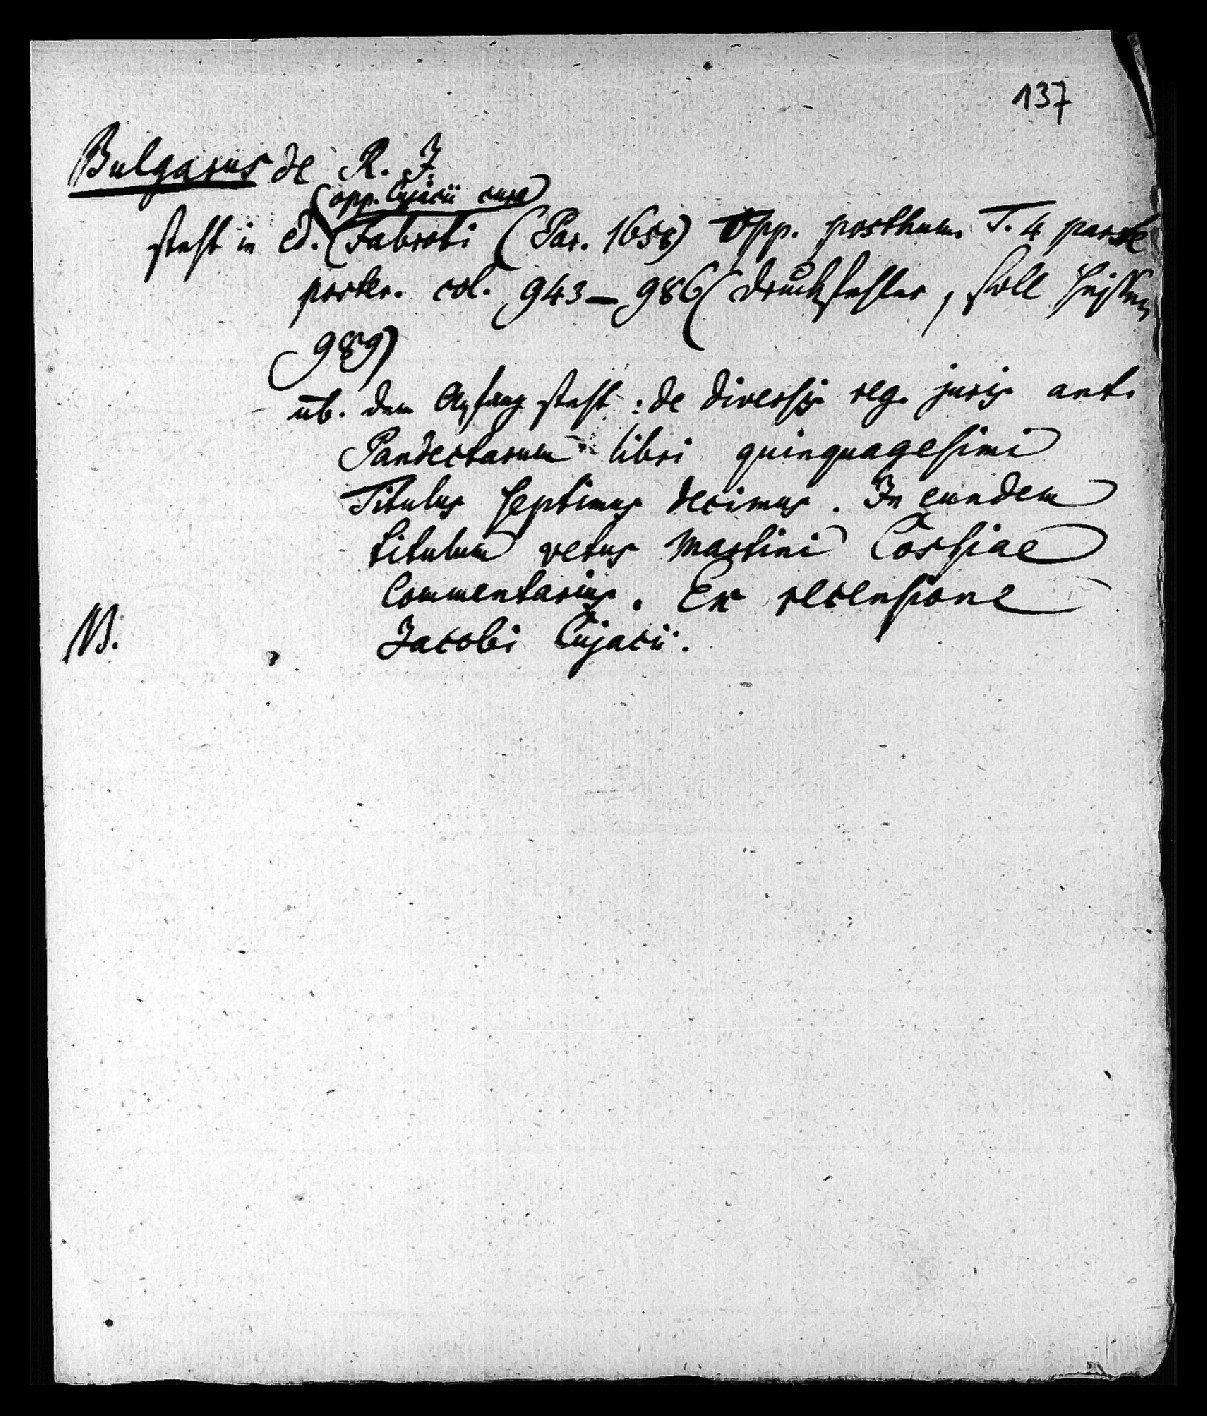 137
Bulgarus de R. J.
(opp. Cujacii cura)
steht in ed. Fabroti (Par. 1658) Opp. posthum. T. 4 parte
poster. col. 943–986 (Druckfehler, soll heissen
989)
üb. dem Anfang steht: de diversis reg. juris ant.
Pandectarum libri quinquagesimi
Titulus septimus decimus. In eundem
titulum vetus Martini Cossiae
Commentarius. Ex recensione
NB. Jacobi Cujacii.